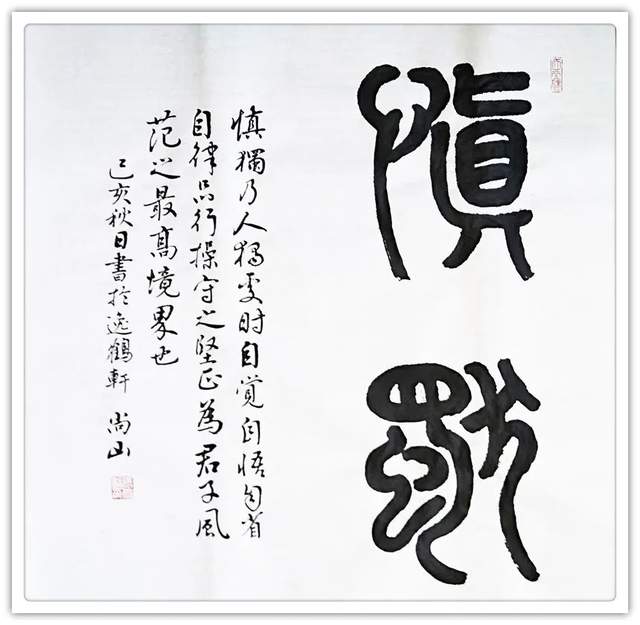 慎獨
慎獨乃人独处时自觉自悟自省
自律品行操守之坚正為君子風
范之最高境界也
己亥秋日書於逸鶴軒 尚山